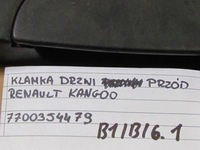 KLAMKA DRZNI PRZÓD
RENAULT KANGOO
7700354479
B1/B/6.1